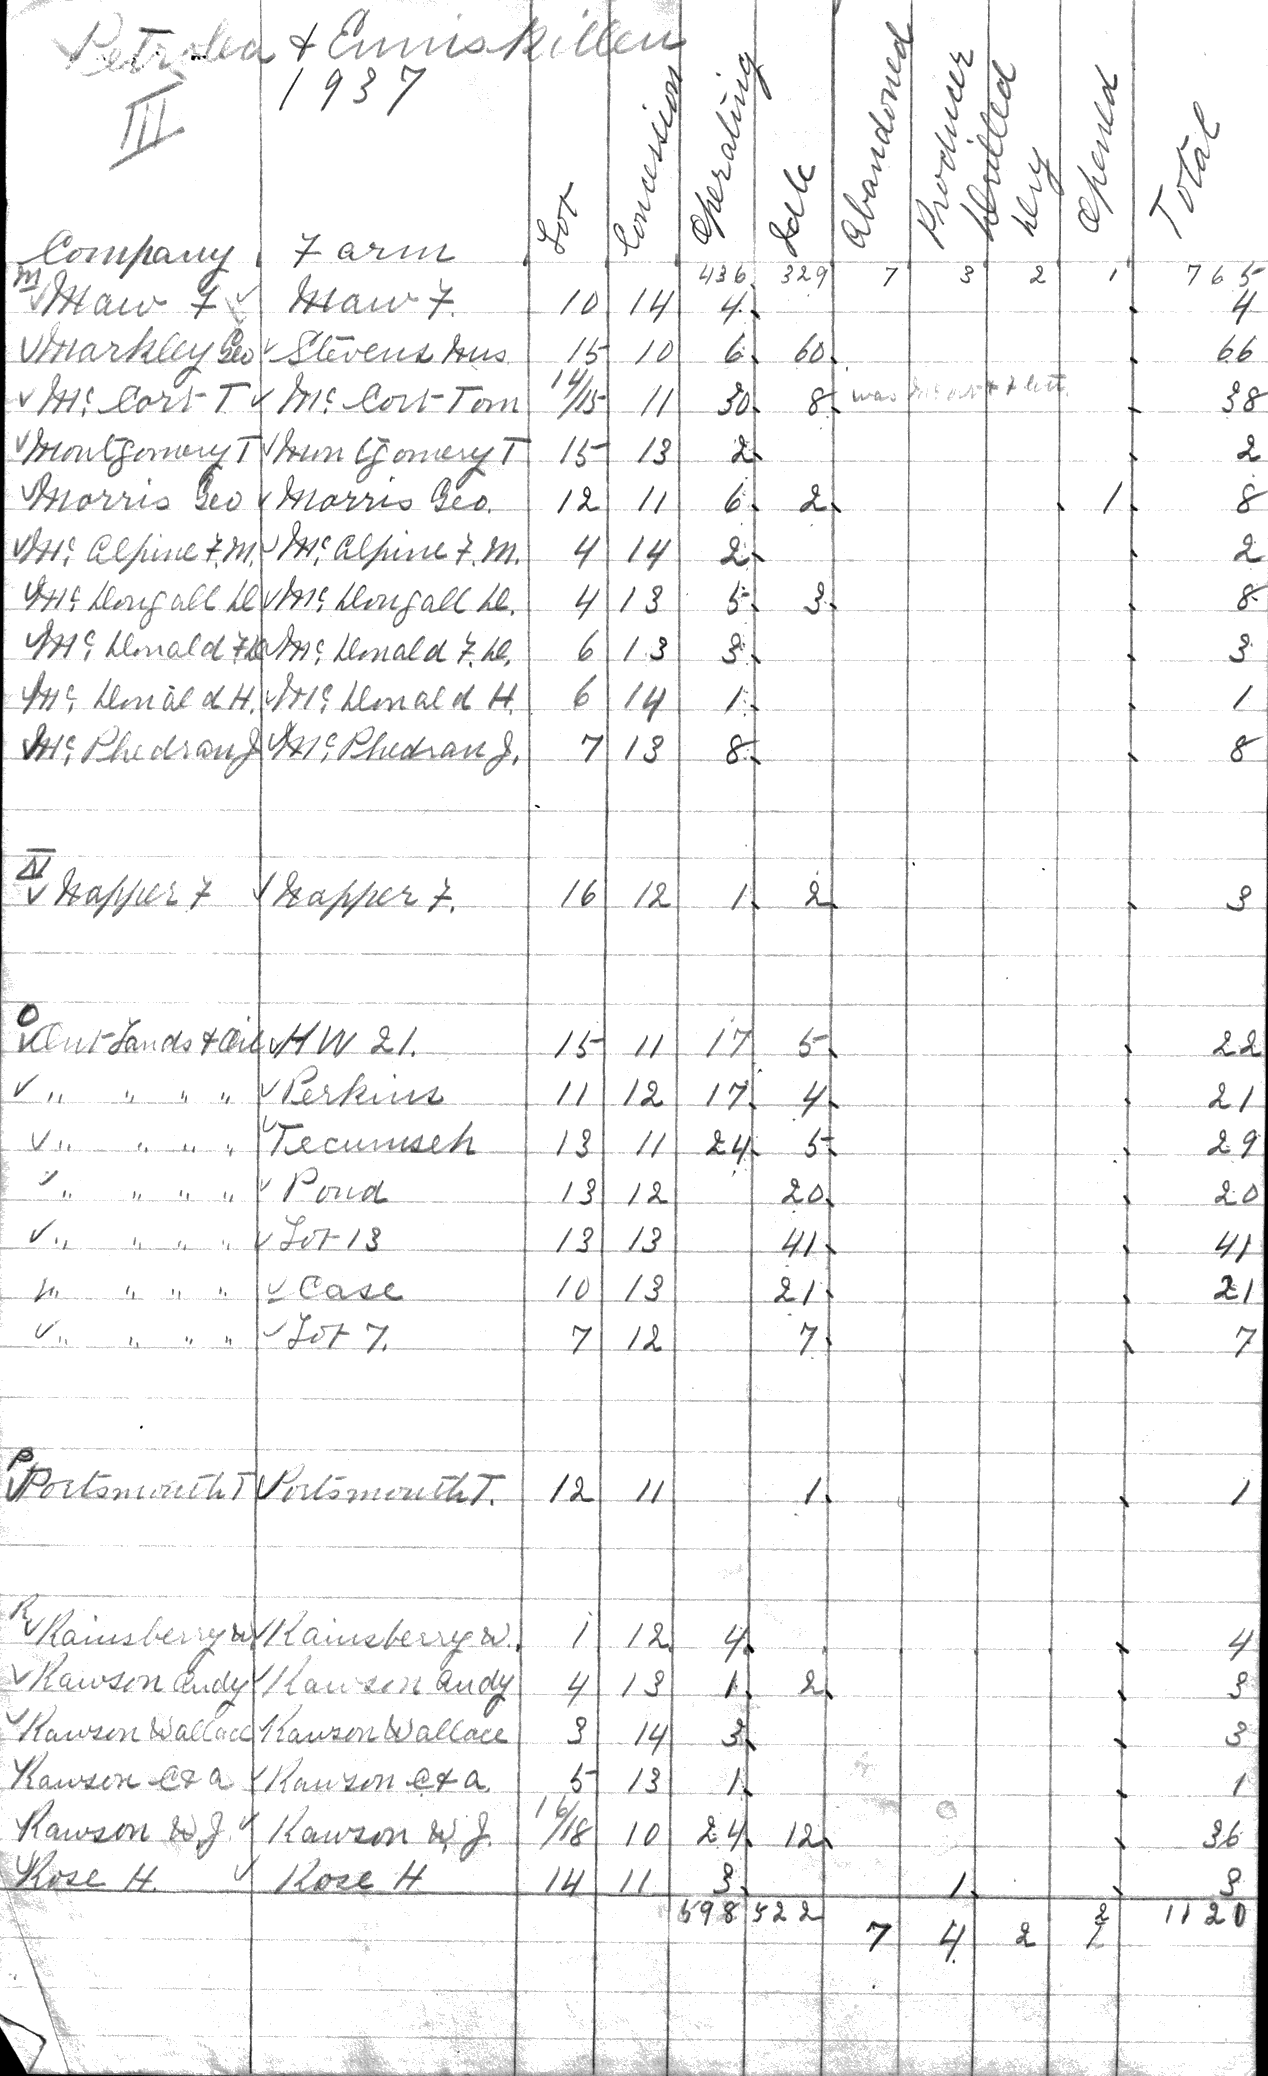 Petrolea & Enniskillen
1937
III
Company Farm Lot Concession Operating Idle Abandoned Producer Drilled Dry Opened Total
436 329 7 3 2 1 765
M
Maw F Maw F. 10 14 4 4
Markley Geo Stevens Mus 15 10 6 60 66
Mc Cort T Mc Cort Tom 14/15 11 30 8 was 38
Montgomery T Montgomery T 15 13 2 2
Morris Geo Morris Geo. 12 11 6 2 1 8
Mc Alpine F.M. Mc Alpine F.M. 4 14 2 2
Mc Dougall D Mc Dougall D. 4 13 5 3 8
Mc Donald F.D. Mc Donald F.D. 6 13 3 3
Mc Donald H. Mc Donald H. 6 14 1 1
Mc Phedran J Mc Phedran J. 7 13 8 8
N
Napper F Napper F. 16 12 1 2 3
O
Ont Lands & Oil HW 21. 15 11 17 5 22
" " " " Perkins 11 12 17 4 21
" " " " Tecumseh 13 11 24 5 29
" " " " Pond 13 12 20 20
" " " " Lot 13 13 13 41 41
" " " " Case 10 13 21 21
" " " " Lot 7. 7 12 7 7
P
Portsmouth T Portsmouth T. 12 11 1 1
R
Rainsberry W Rainsberry W. 1 12 4 4
Rawson Andy Rawson Andy 4 13 1 2 3
Rawson Wallace Rawson Wallace 3 14 3 3
Rawson C & A Rawson C & A. 5 13 1 1
Rawson W.J. Rawson W.J. 16/18 10 24 12 36
Rose H. Rose H 14 11 3 1 3
598 522 7 4 2 2 1120